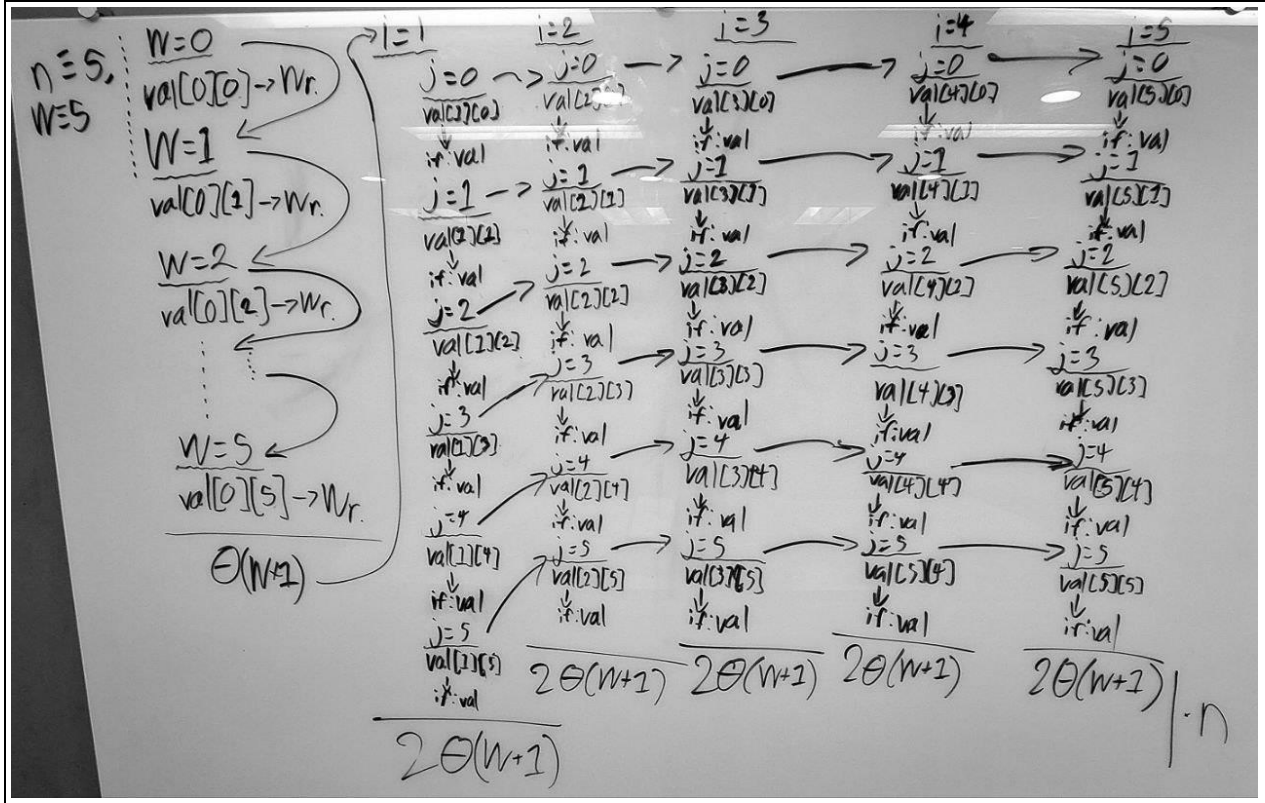 n=5,
W=5
W=0
val[0][0]→Wr.
W=1
val[0][1]→Wr.
W=2
val[0][2]→Wr.
W=5
val[0][5]→Wr.
Θ(W+1)
i=1
j=0
val[1][0]
if:val
j=1
val[1][1]
if:val
j=2
val[1][2]
if:val
j=3
val[1][3]
if:val
j=4
val[1][4]
if:val
j=5
val[1][5]
if:val
2Θ(W+1)
i=2
j=0
val[2][0]
if:val
j=1
val[2][1]
if:val
j=2
val[2][2]
if:val
j=3
val[2][3]
if:val
j=4
val[2][4]
if:val
j=5
val[2][5]
if:val
2Θ(W+1)
i=3
j=0
val[3][0]
if:val
j=1
val[3][1]
if:val
j=2
val[3][2]
if:val
j=3
val[3][3]
if:val
j=4
val[3][4]
if:val
j=5
val[3][5]
if:val
2Θ(W+1)
i=4
j=0
val[4][0]
if:val
j=1
val[4][1]
if:val
j=2
val[4][2]
if:val
j=3
val[4][3]
if:val
j=4
val[4][4]
if:val
j=5
val[5][4]
if:val
2Θ(W+1)
i=5
j=0
val[5][0]
if:val
j=1
val[5][1]
if:val
j=2
val[5][2]
if:val
j=3
val[5][3]
if:val
j=4
val[5][4]
if:val
j=5
val[5][5]
if:val
2Θ(W+1)
·n